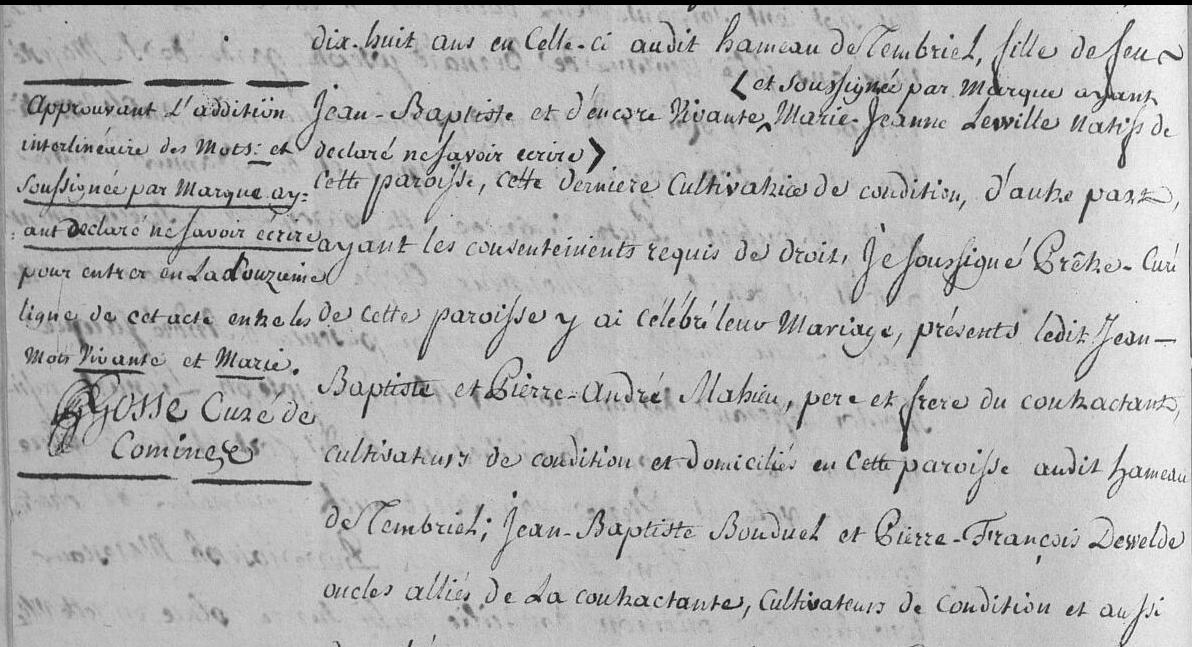 Approuvant L'addition
interlinéaire des Mots: et
Soussignée par Marque ay:
:ant declaré ne savoir ecrire
pour entrer en La douzieme
ligne de cet acte entre les
Mots Vivante et Marie.
Gosse Curé de
Comines
dix-huit ans en Celle-ci audit hameau de Tembriel, fille de feu
et soussignée par Marque ayant
Jean-Baptiste et d'encore Vivante Marie-Jeanne Lewille natifs de
declaré ne savoir ecrire
cette paroisse, cette derniere Cultivatrice de condition, d'autre part,
ayant les consentements requis de droit, Je soussigné Prêtre-Curé
de cette paroisse y ai célébré leur Mariage, présents ledit Jean-
Baptiste et Pierre-André Mahieu, pere et frere du contractant,
cultivateurs de condition et domiciliés en Cette paroisse audit hameau
de Tembriel; Jean-Baptiste Bonduel et Pierre-François Dewelde
oncles alliés de La contractante, Cultivateurs de Condition et aussi